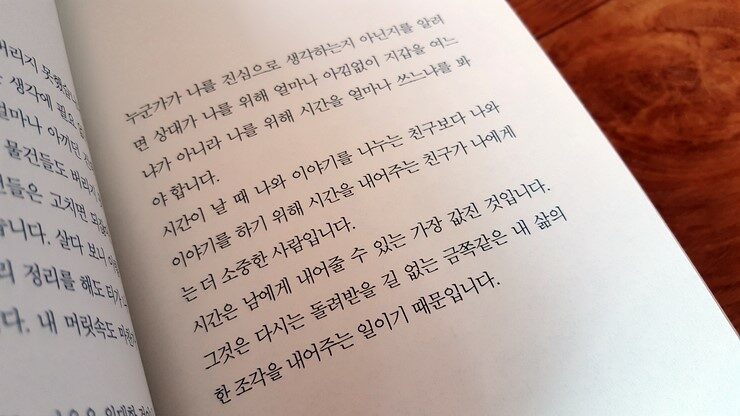 버리지 못했
생각에 필요
얼마나 아끼던
물건들도 버리
들은 고치면
습니다. 살다 보니
리 정리를 해도 티가
다. 내 머릿속도 마찬
누군가가 나를 진심으로 생각하는지 아닌지를 알려
면 상대가 나를 위해 얼마나 아낌없이 지갑을 여느
냐가 아니라 나를 위해 시간을 얼마나 쓰느냐를 봐
야 합니다.
시간이 날 때 나와 이야기를 나누는 친구보다 나와
이야기를 하기 위해 시간을 내어주는 친구가 나에게
는 더 소중한 사람입니다.
시간은 남에게 내어줄 수 있는 가장 값진 것입니다.
그것은 다시는 돌려받을 길 없는 금쪽같은 내 삶의
한 조각을 내어주는 일이기 때문입니다.